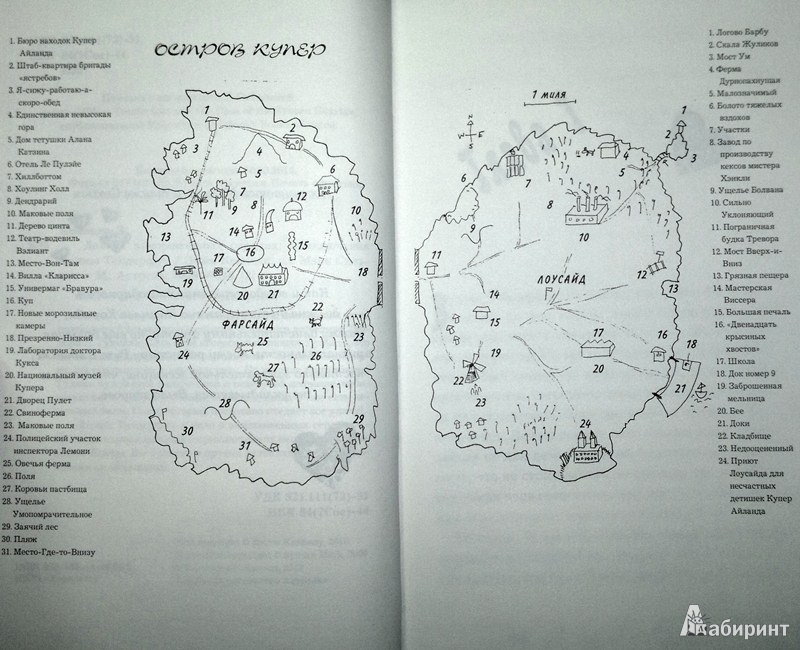 ОСТРОВ КУПЕР
1. Бюро находок Купер
Айланда
2. Штаб-квартира бригады
«ястребов»
3. Я-сижу-работаю-а-
скоро-обед
4. Единственная невысокая
гора
5. Дом тетушки Алана
Катанна
6. Отель Ле Пулэйе
7. Хиллботтом
8. Хоулинг Холл
9. Дендрарий
10. Маковые поля
11. Дерево цинта
12. Театр-водевиль
Вэлиант
13. Место-Вон-Там
14. Вилла «Кларисса»
15. Универмаг «Бравура»
16. Куп
17. Новые морозильные
камеры
18. Презренно-Низкий
19. Лаборатория доктора
Кукса
20. Национальный музей
Купера
21. Дворец Пулет
22. Свиноферма
23. Маковые поля
24. Полицейский участок
инспектора Лемони
25. Овечья ферма
26. Поля
27. Коровьи пастбища
28. Ущелье
Умопомрачительное
29. Заячий лес
30. Пляж
31. Место-Где-то-Внизу
1
2
3
4
5
6
7
8
9
10
11
12
13
14
15
16
17
18
19
20
21
22
ФАРСАЙД
23
24
25
26
27
28
29
30
31
1 МИЛЯ
N
W
E
S
1
2
3
4
5
6
7
8
9
10
11
12
13
ЛОУСАЙД
14
15
16
17
18
19
20
21
22
23
24
1. Логово Барбу
2. Скала Жуликов
3. Мост Ум
4. Ферма
Дурнопахнущая
5. Малозначимый
6. Болото тяжелых
вздохов
7. Участки
8. Завод по
производству
кексов мистера
Хэнкли
9. Ущелье Болвана
10. Сильно
Уклоняющий
11. Пограничная
будка Тревора
12. Мост Вверх-и-
Вниз
13. Грязная пещера
14. Мастерская
Виссера
15. Большая печаль
16. «Двенадцать
крысиных
хвостов»
17. Школа
18. Док номер 9
19. Заброшенная
мельница
20. Бее
21. Доки
22. Кладбище
23. Недооцененный
24. Приют
Лоусайда для
несчастных
детишек Купер
Айланда
Лабиринт